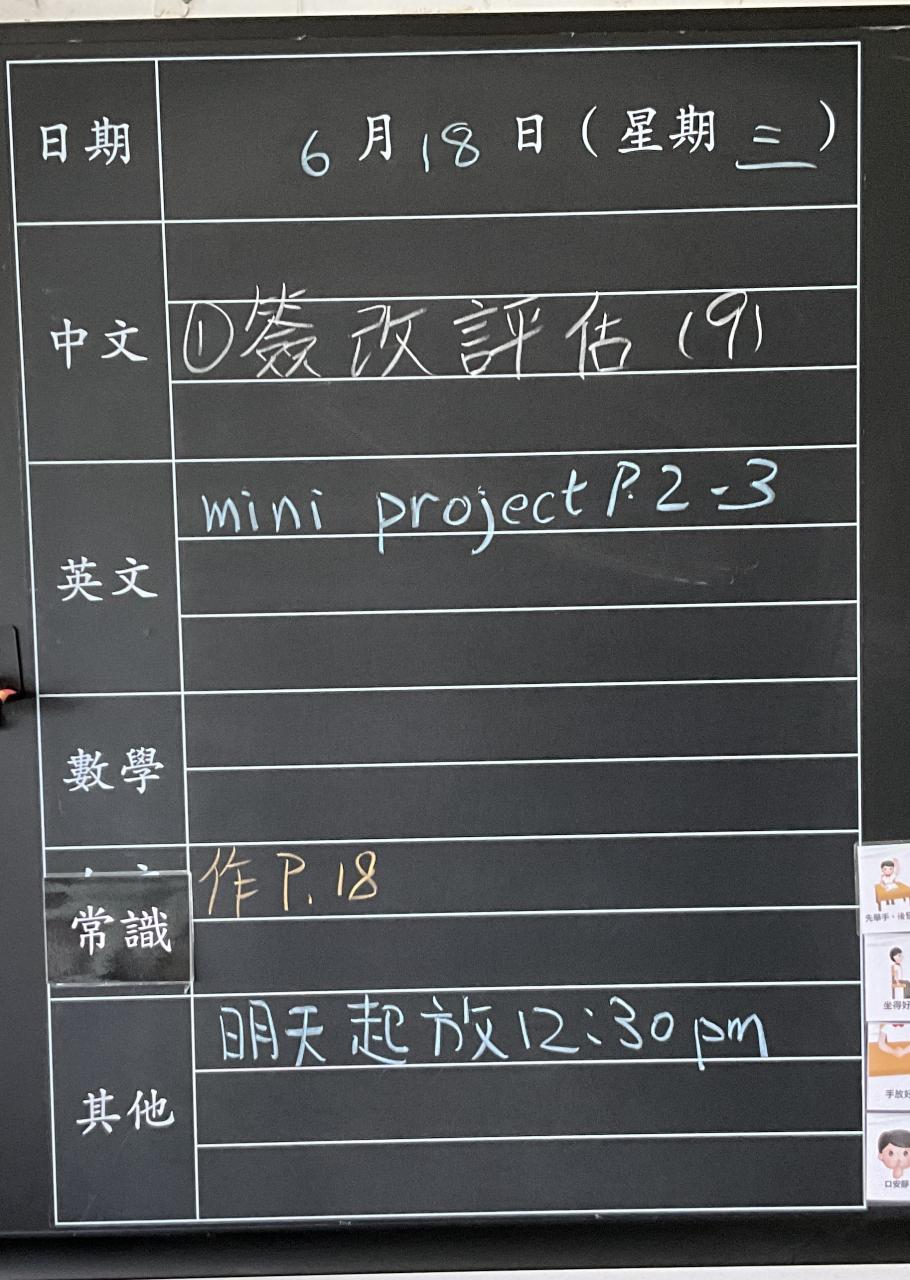 日期 6月18日（星期三）
中文 ①簽改評估(9)
英文 mini project P.2-3
數學
常識 作P.18
其他 明天起放12:30pm
先舉手、後
坐得好
手放好
口安靜